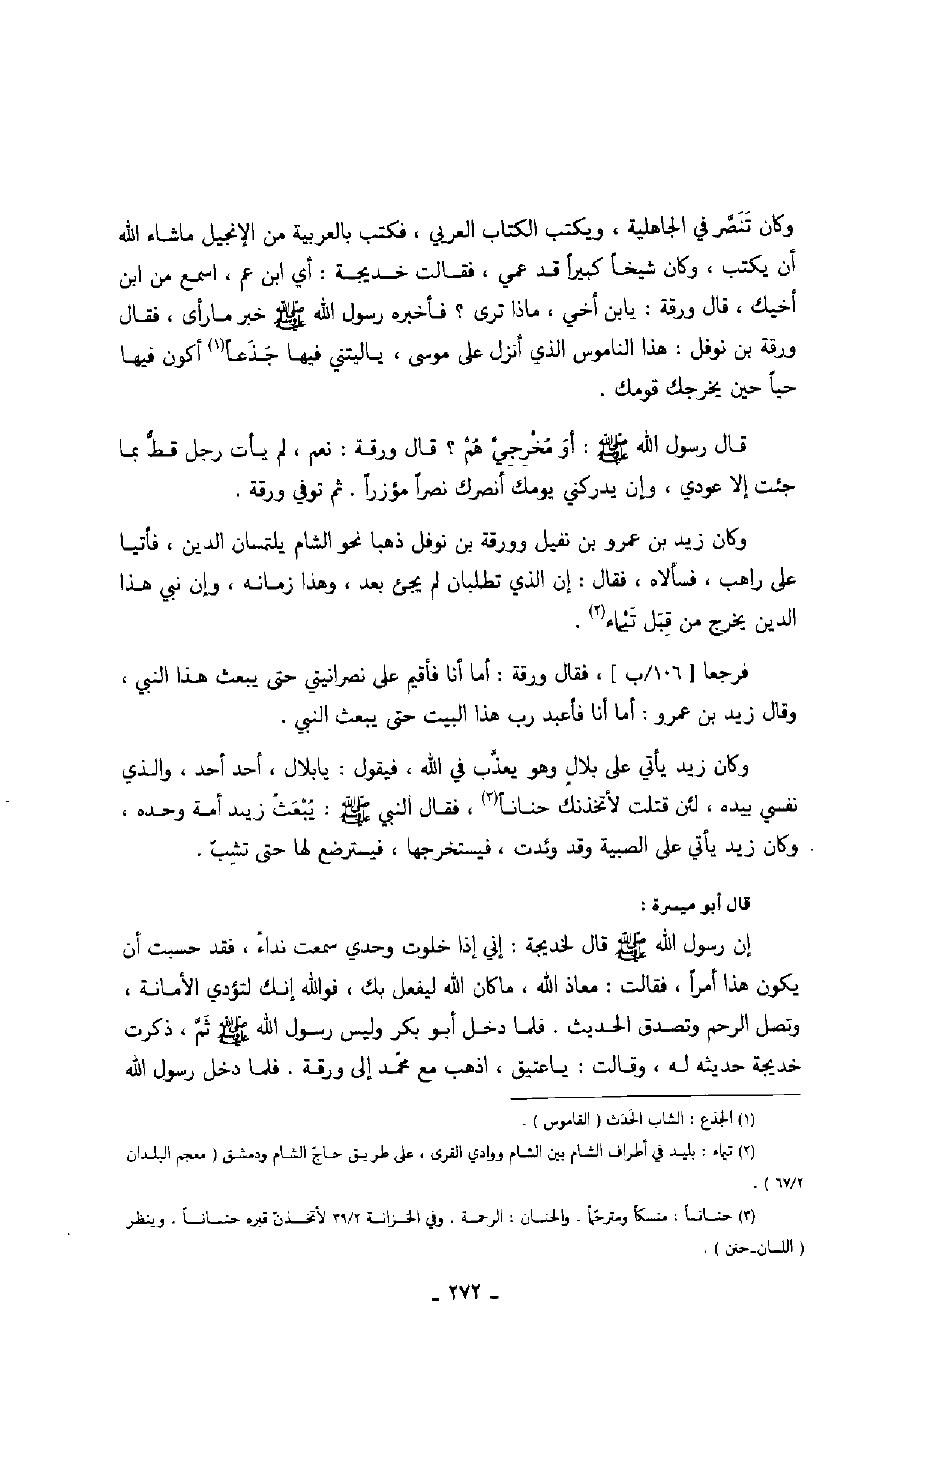 وكان تَنَصَّر في الجاهلية ، ويكتب الكتاب العربي ، فكتب بالعربية من الإنجيل ماشاء الله
أن يكتب ، وكان شيخاً كبيراً قد عمي ، فقالت خديجة : أي ابن عم ، اسمع من ابن
أخيك ، قال ورقة : يابن أخي ، ماذا ترى ؟ فأخبره رسول الله ﷺ خبر مارأى ، فقال
ورقة بن نوفل : هذا الناموس الذي أنزل على موسى ، ياليتني فيها جَذَعاً(١) أكون فيها
حياً حين يخرجك قومك .
قال رسول الله ﷺ : أوَ مُخْرِجيَّ هُمْ ؟ قال ورقة : نعم ، لم يأت رجل قطُّ بما
جئت إلا عودي ، وإن يدركني يومك أنصرك نصراً مؤزراً . ثم توفي ورقة .
وكان زيد بن عمرو بن نفيل وورقة بن نوفل ذهبا نحو الشام يلتمسان الدين ، فأتيا
على راهب ، فسألاه ، فقال : إن الذي تطلبان لم يجئ بعد ، وهذا زمانه ، وإن نبي هذا
الدين يخرج من قِبَل تَيْماء(٢) .
فرجعا [ ١٠٦/ب ] ، فقال ورقة : أما أنا فأقيم على نصرانيتي حتى يبعث هذا النبي ،
وقال زيد بن عمرو : أما أنا فأعبد رب هذا البيت حتى يبعث النبي .
وكان زيد يأتي على بلالٍ وهو يعذَّب في الله ، فيقول : يابلال ، أحد أحد ، والذي
نفسي بيده ، لئن قتلت لأتخذنك حناناً(٣) ، فقال النبي ﷺ : يُبْعَثُ زيد أمة وحده ،
وكان زيد يأتي على الصبية وقد وئدت ، فيستخرجها ، فيسترضع لها حتى تشِبّ .
قال أبو ميسرة :
إن رسول الله ﷺ قال لخديجة : إني إذا خلوت وحدي سمعت نداءً ، فقد حسبت أن
يكون هذا أمراً ، فقالت : معاذ الله ، ماكان الله ليفعل بك ، فوالله إنك لتؤدي الأمانة ،
وتصل الرحم وتصدق الحديث . فلما دخل أبو بكر وليس رسول الله ﷺ ثَمَّ ، ذكرت
خديجة حديثه له ، وقالت : ياعتيق ، اذهب مع محمّد إلى ورقة . فلما دخل رسول الله
(١) الجذع : الشاب الحَدَث ( القاموس ) .
(٢) تيماء : بليد في أطراف الشام بين الشام ووادي القرى ، على طريق حاجّ الشام ودمشق ( معجم البلدان
٦٧/٢ ) .
(٣) حناناً : منسكاً ومترحّماً . والحنان : الرحمة . وفي الخزانة ٣٩/٢ لأتخذنّ قبره حناناً . وينظر
( اللسان-حنن ) .
- ٢٧٢ -